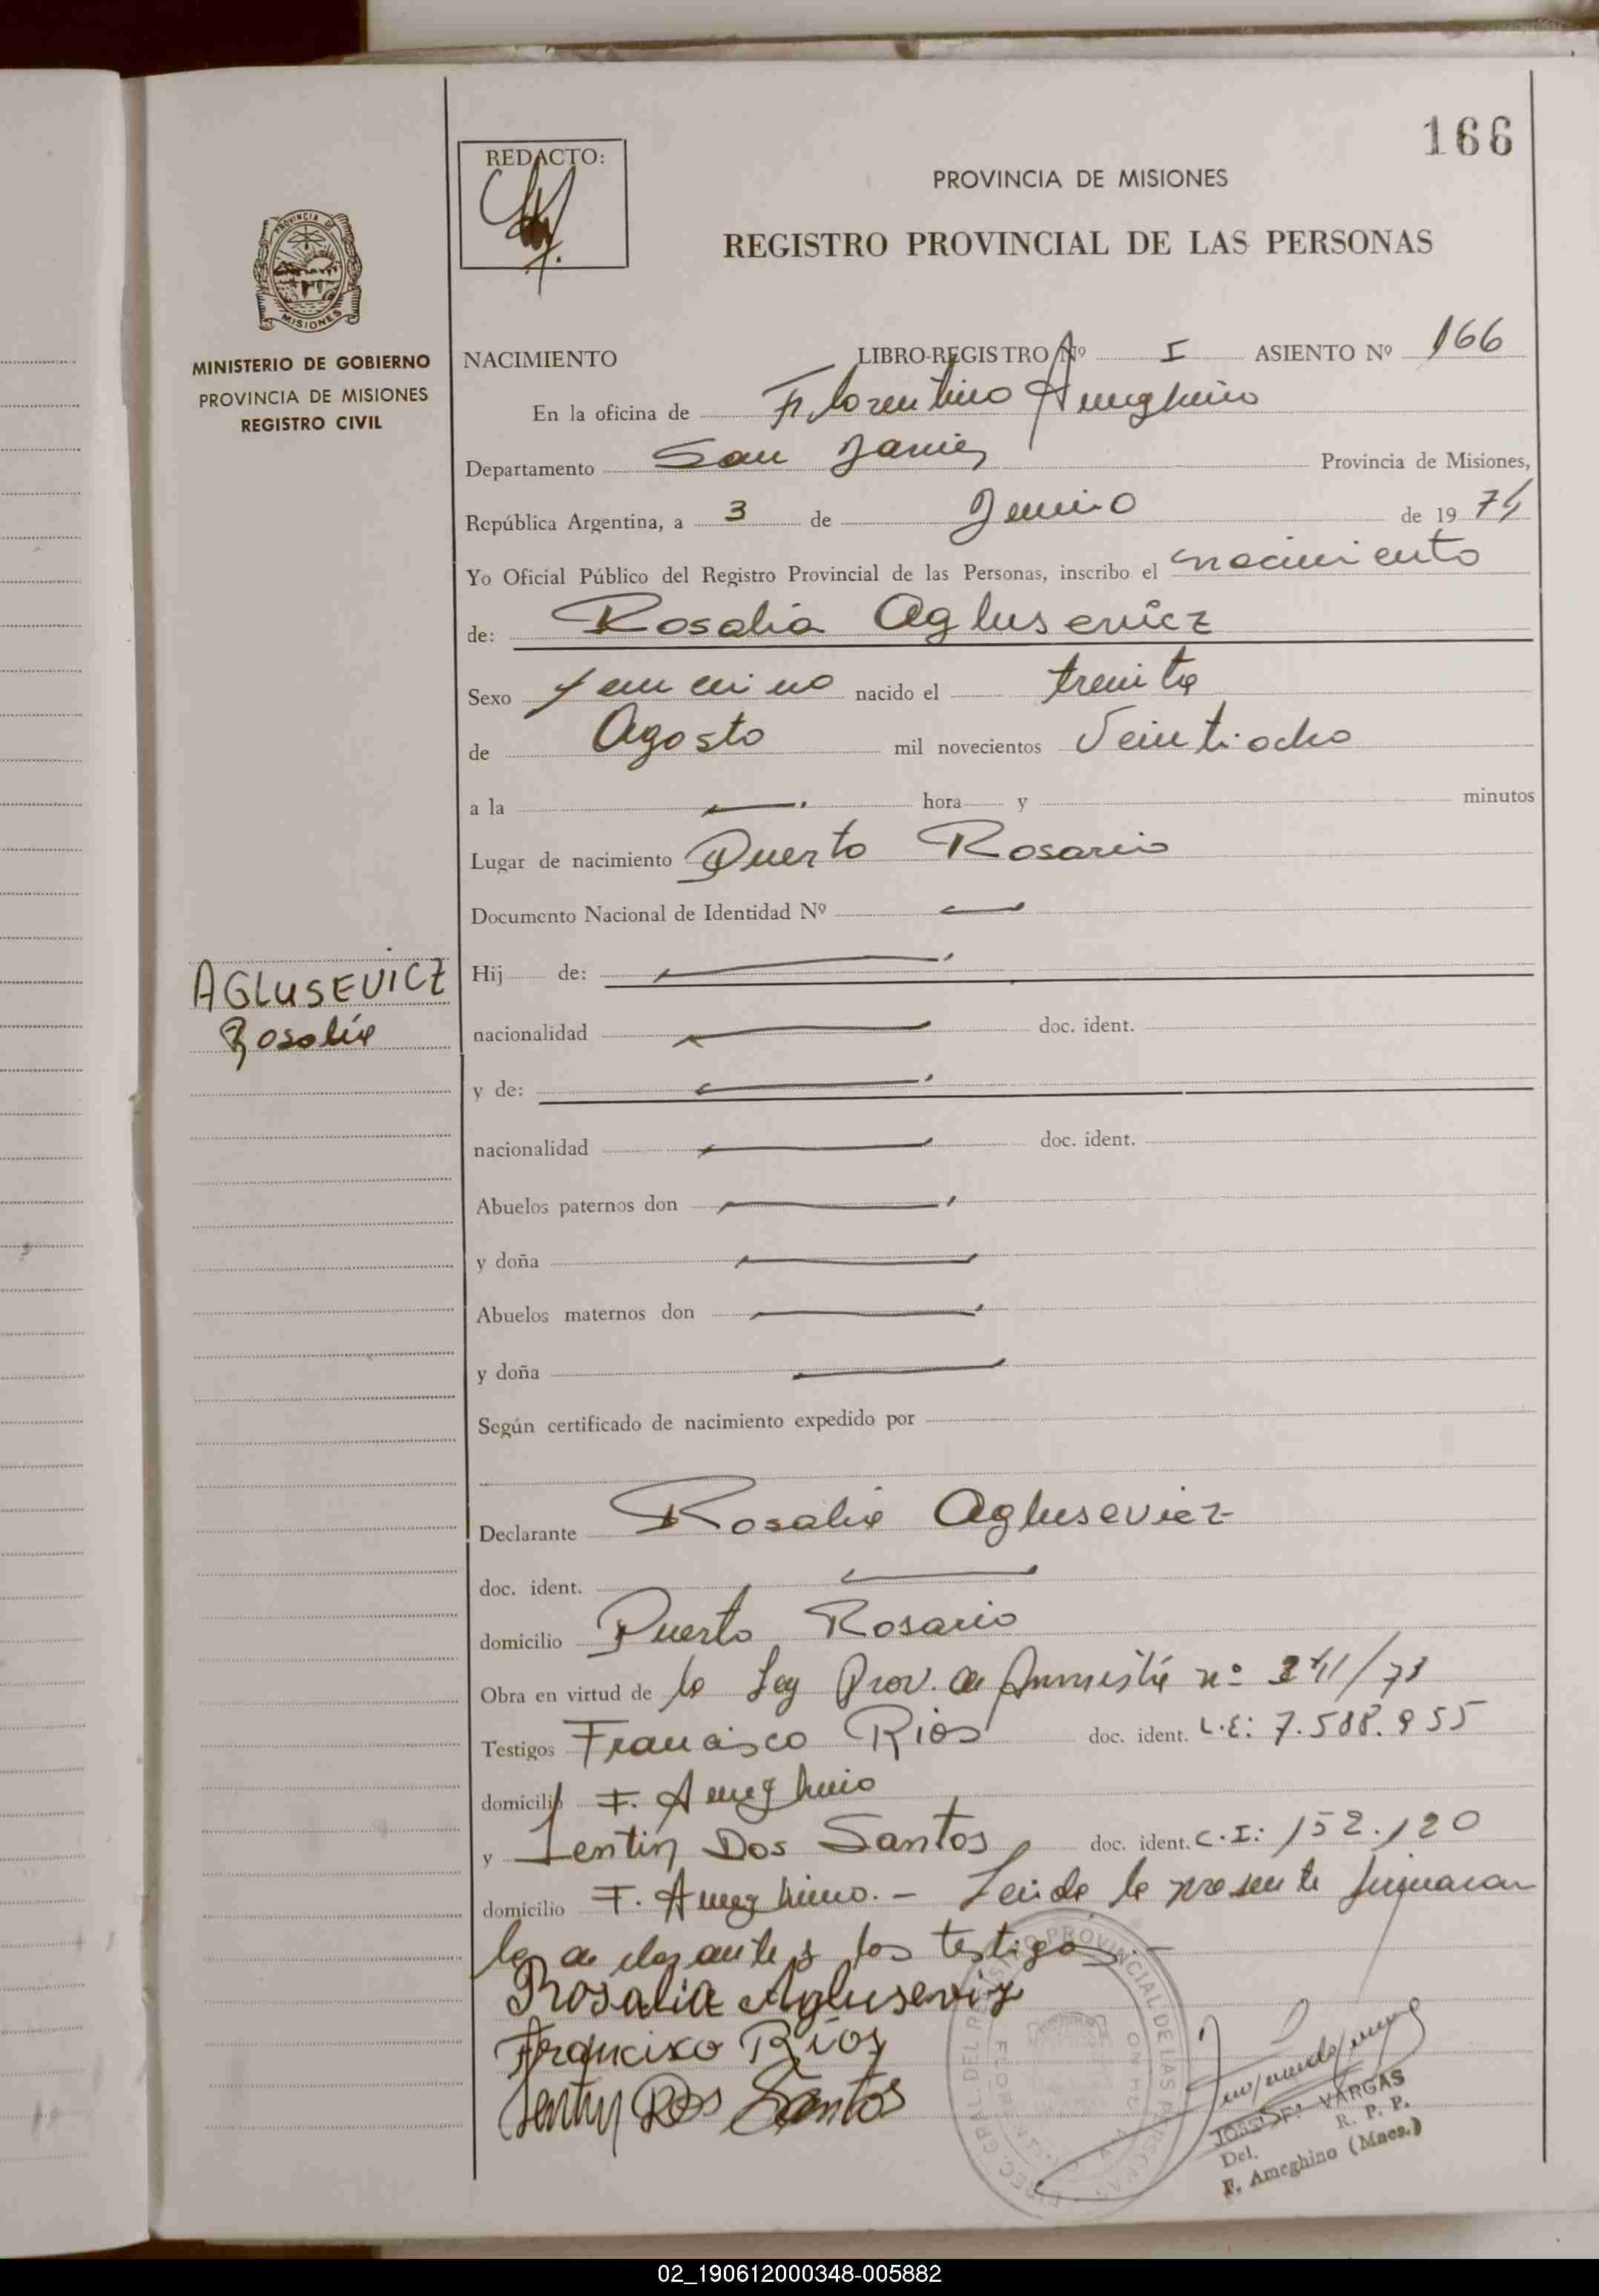 166
REDACTO:
PROVINCIA DE MISIONES
REGISTRO PROVINCIAL DE LAS PERSONAS
PROVINCIA DE
MISIONES
MINISTERIO DE GOBIERNO
PROVINCIA DE MISIONES
REGISTRO CIVIL
NACIMIENTO LIBRO-REGISTRO Nº I ASIENTO Nº 166
En la oficina de Florentino Ameghino
Departamento San Javier Provincia de Misiones,
República Argentina, a 3 de Junio de 19 74
Yo Oficial Público del Registro Provincial de las Personas, inscribo el nacimiento
de: Rosalia Aglusevicz
Sexo femenino nacido el treinta
de Agosto mil novecientos Veintiocho
a la —. hora y minutos
Lugar de nacimiento Puerto Rosario
Documento Nacional de Identidad Nº —
AGLUSEVICZ
Rosalía
Hij de: —
nacionalidad — doc. ident.
y de: —
nacionalidad — doc. ident.
Abuelos paternos don —
y doña —
Abuelos maternos don —
y doña —
Según certificado de nacimiento expedido por
Declarante Rosalia Aglusevicz
doc. ident. —
domicilio Puerto Rosario
Obra en virtud de la Ley Prov. de Amnistía nº /73
Testigos Francisco Rios doc. ident. L.E: 7.588.955
domicilio F. Ameghino
y Lentin Dos Santos doc. ident. C.I: 152.120
domicilio F. Ameghino. — Leida la presente firmaron
la declarante y los testigos.—
Rosalia Agluseviz
Francisco Rios
Dos Santos
JOSE F. VARGAS
Del. R. P. P.
F. Ameghino (Mnes.)
02_190612000348-005882